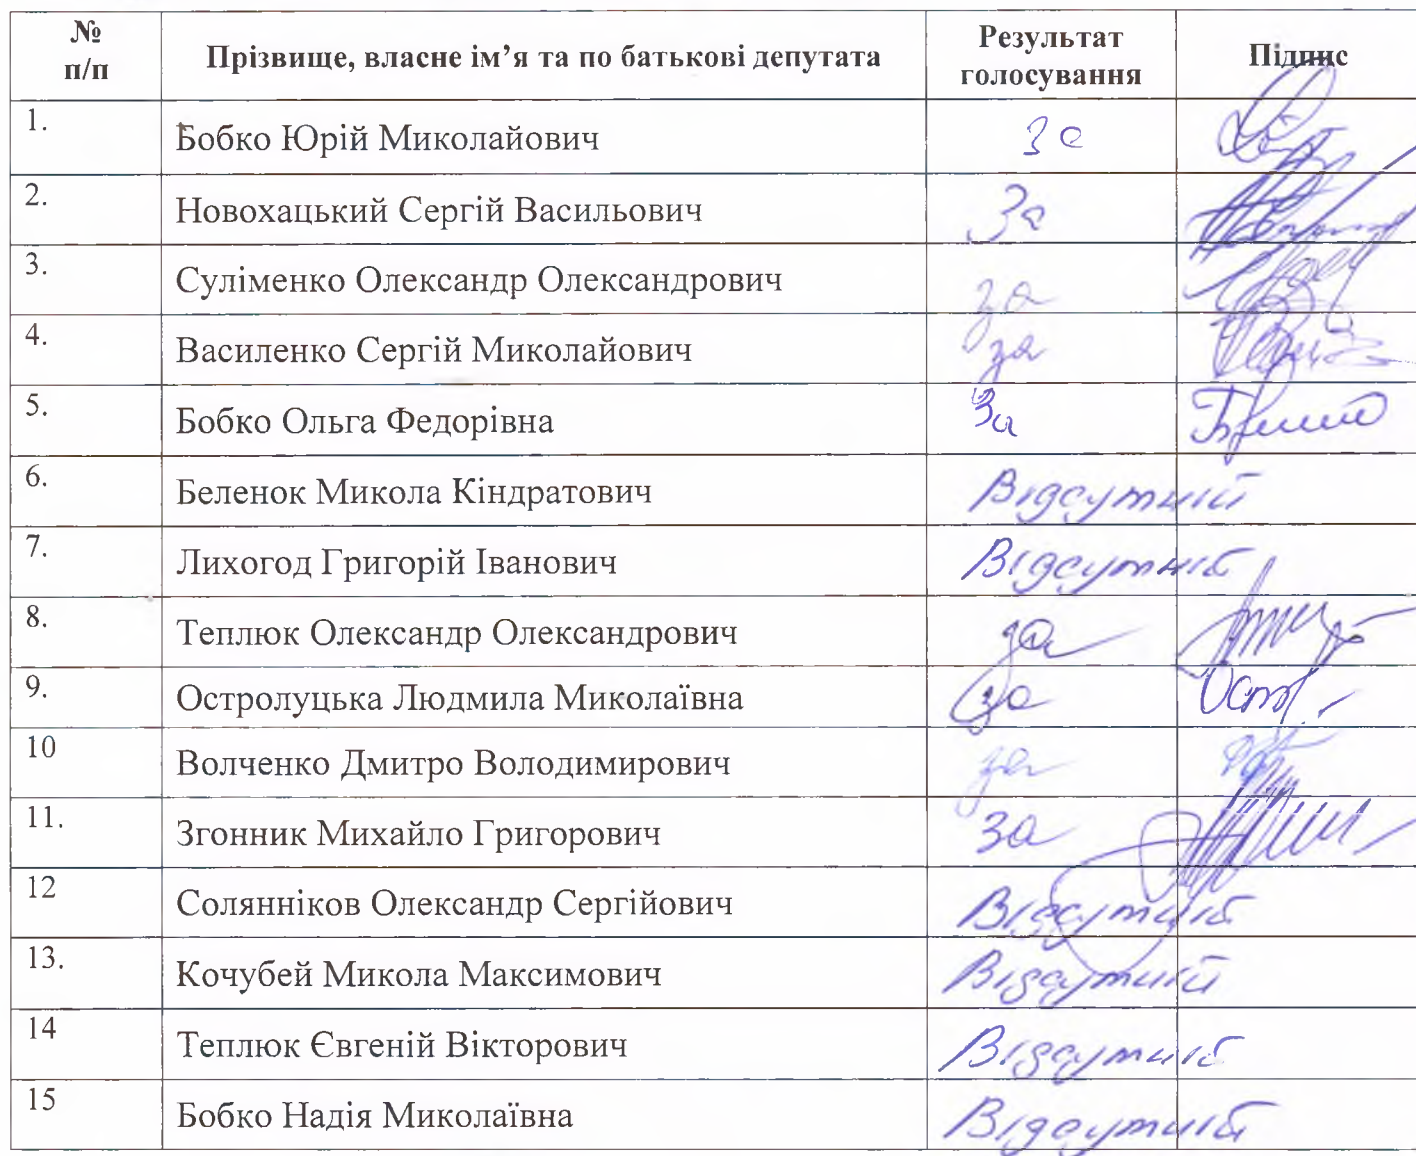 № п/п Прізвище, власне ім’я та по батькові депутата Результат голосування Підпис
1. Бобко Юрій Миколайович За
2. Новохацький Сергій Васильович За
3. Суліменко Олександр Олександрович за
4. Василенко Сергій Миколайович за
5. Бобко Ольга Федорівна За
6. Беленок Микола Кіндратович Відсутній
7. Лихогод Григорій Іванович Відсутній
8. Теплюк Олександр Олександрович за
9. Остролуцька Людмила Миколаївна за
10 Волченко Дмитро Володимирович за
11. Згонник Михайло Григорович за
12 Солянніков Олександр Сергійович Відсутній
13. Кочубей Микола Максимович Відсутній
14 Теплюк Євгеній Вікторович Відсутній
15 Бобко Надія Миколаївна Відсутній